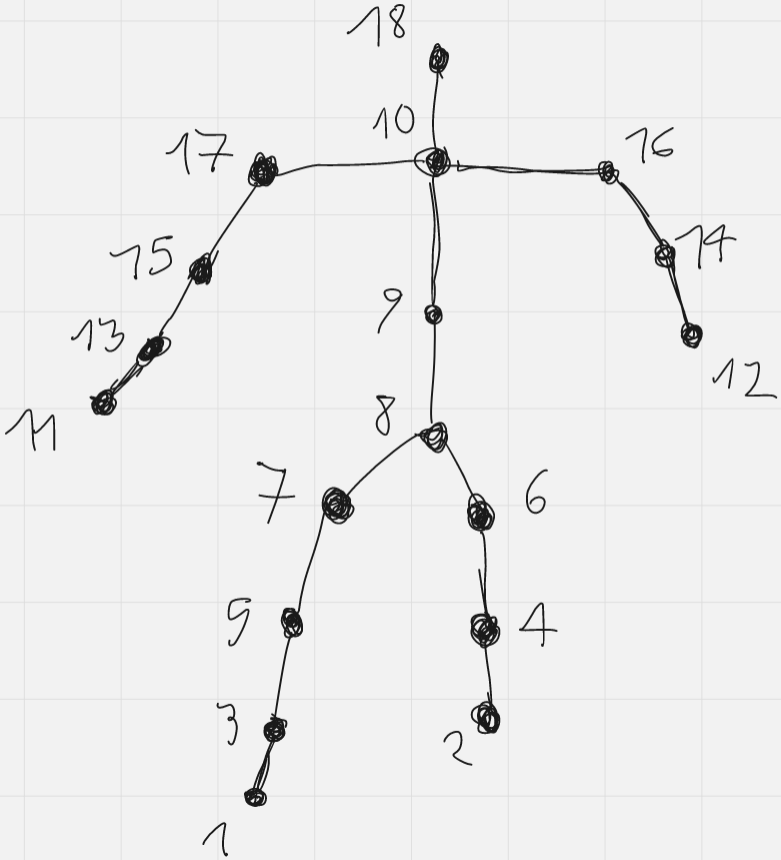 18
10
17
16
15
14
13
9
12
11
8
7
6
5
4
3
2
1